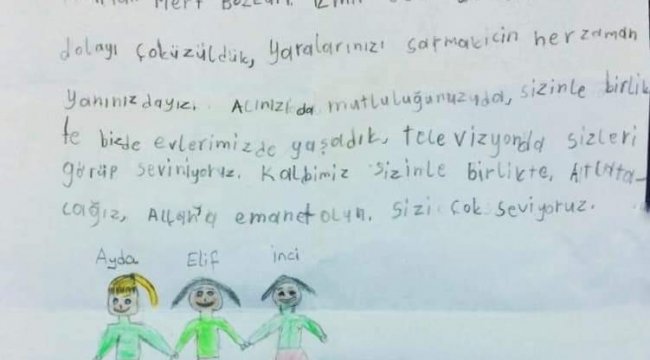 Mert Bozkurt. İzmir
dolayı çoküzüldük, yaralarınızı sarmakicin herzaman
Yanınızdayız. Acınızıda mutluluğunuzuda, sizinle birlik
te bizde evlerimizde yaşadık, televizyonda sizleri
görüp seviniyoruz. Kalbimiz sizinle birlikte, Atlata-
cağız, Allah'a emanet olun. Sizi çok seviyoruz.
Ayda Elif inci